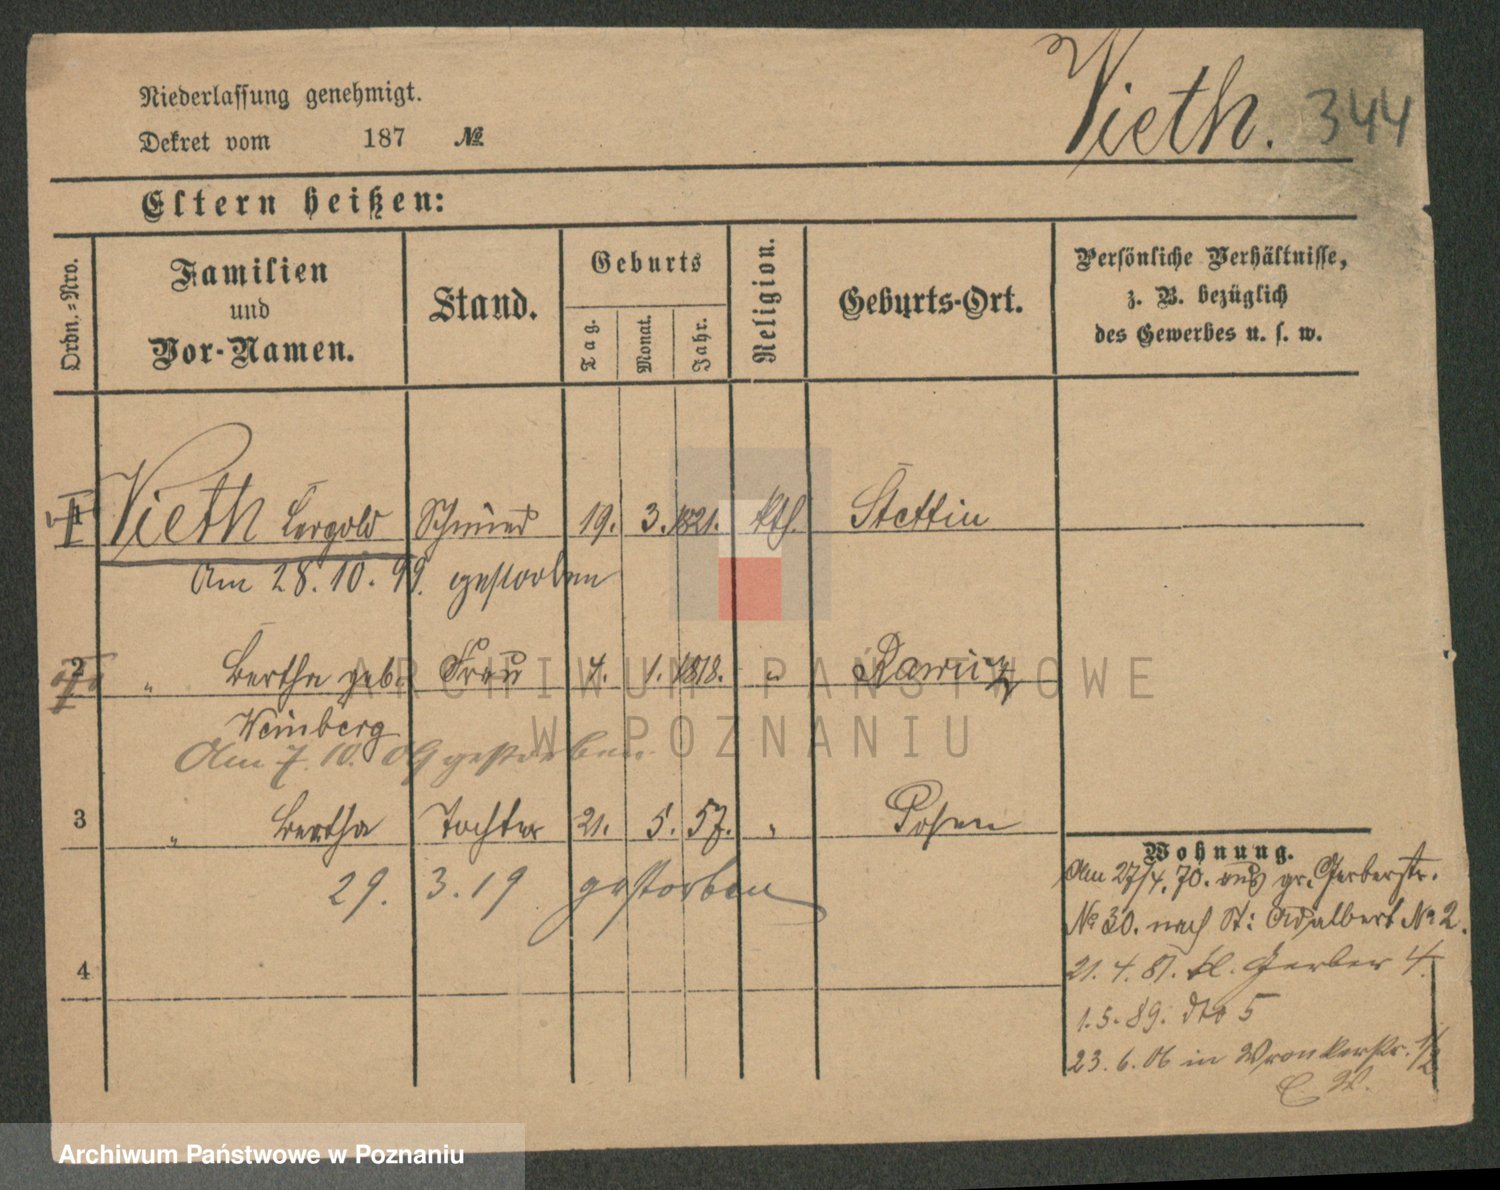 Niederlassung genehmigt.
Vieth. 344
Dekret vom 187 №
Eltern heißen:
Ordn.=Nro.
Familien
und
Vor-Namen.
Stand.
Geburts
Tag.
Monat.
Jahr.
Religion.
Geburts-Ort.
Persönliche Verhältnisse,
z. B. bezüglich
des Gewerbes u. s. w.
1 Vieth Leopold Schmied 19. 3. 1821. kth. Stettin
Am 28.10.99. gestorben
2 " Bertha geb. Frau 7. 1. 1818. " Rawicz
Weinberg
Am 7. 10. 09 gestorben
3 " Bertha Tochter 21. 5. 57. " Posen
29. 3. 19 gestorben
4
Wohnung.
Am 27/4. 70. aus gr. Gerberstr.
№ 30. nach St: Adalbert № 2.
21. 4. 81. kl. Gerber 4.
1. 5. 89. dto 5
23. 6. 06 in Wronkerstr. 1/2
ARCHIWUM PAŃSTWOWE
W POZNANIU
Archiwum Państwowe w Poznaniu